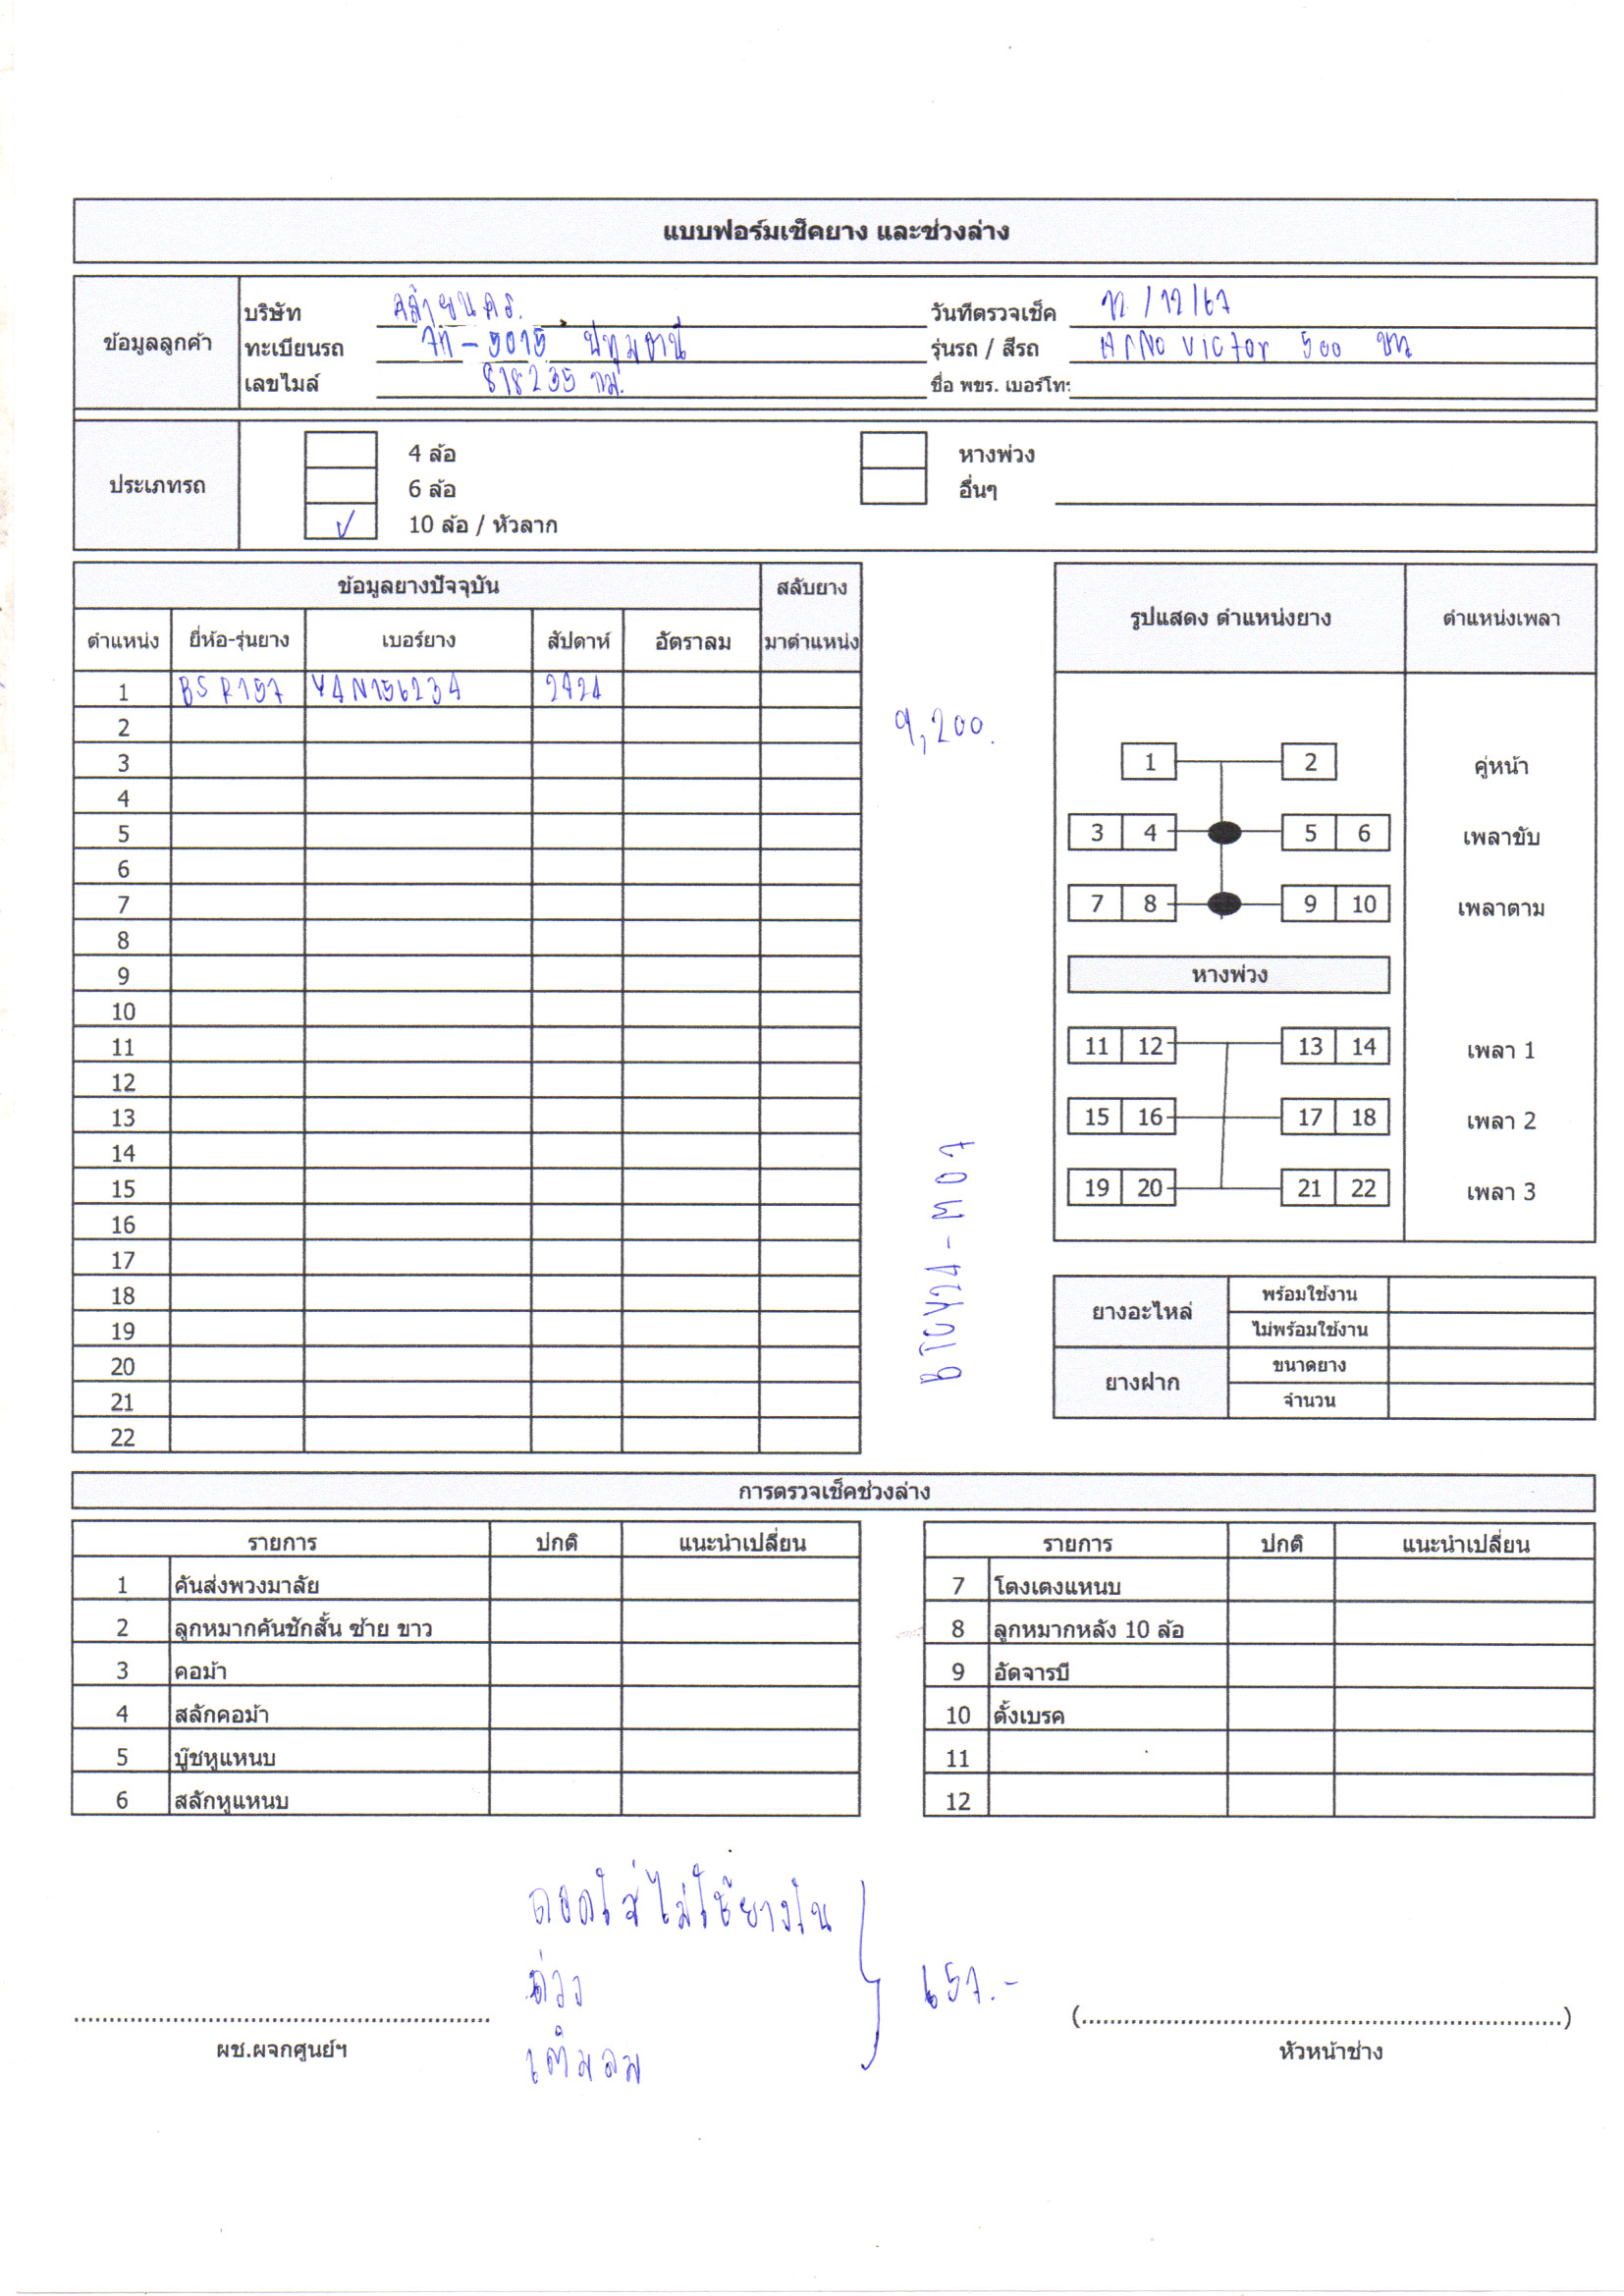 แบบฟอร์มเช็คยาง และช่วงล่าง
ข้อมูลลูกค้า
บริษัท คล้ายนคร. วันที่ตรวจเช็ค 12/12/67
ทะเบียนรถ 5015 ปทุมธานี รุ่นรถ / สีรถ HINO VICTOR 500 ขาว
เลขไมล์ 818235 กม. ชื่อ พขร. เบอร์โท:
ประเภทรถ
4 ล้อ หางพ่วง
6 ล้อ อื่นๆ
✓ 10 ล้อ / หัวลาก
ข้อมูลยางปัจจุบัน สลับยาง
ตำแหน่ง ยี่ห้อ-รุ่นยาง เบอร์ยาง สัปดาห์ อัตราลม มาตำแหน่ง
1 BS R157 Y4N156234 2424
2
3
4
5
6
7
8
9
10
11
12
13
14
15
16
17
18
19
20
21
22
9,200.
BTCY24-M07
รูปแสดง ตำแหน่งยาง ตำแหน่งเพลา
1 2 คู่หน้า
3 4 5 6 เพลาขับ
7 8 9 10 เพลาตาม
หางพ่วง
11 12 13 14 เพลา 1
15 16 17 18 เพลา 2
19 20 21 22 เพลา 3
ยางอะไหล่ พร้อมใช้งาน
ไม่พร้อมใช้งาน
ยางฝาก ขนาดยาง
จำนวน
การตรวจเช็คช่วงล่าง
รายการ ปกติ แนะนำเปลี่ยน
1 คันส่งพวงมาลัย
2 ลูกหมากคันชักสั้น ซ้าย ขาว
3 คอม้า
4 สลักคอม้า
5 บู๊ชหูแหนบ
6 สลักหูแหนบ
รายการ ปกติ แนะนำเปลี่ยน
7 โตงเตงแหนบ
8 ลูกหมากหลัง 10 ล้อ
9 อัดจารบี
10 ตั้งเบรค
11
12
ถอดใส่ไม่ใช้ยางใน
ถ่วง
เติมลม
657.-
ผช.ผจกศูนย์ฯ
(..........)
หัวหน้าช่าง